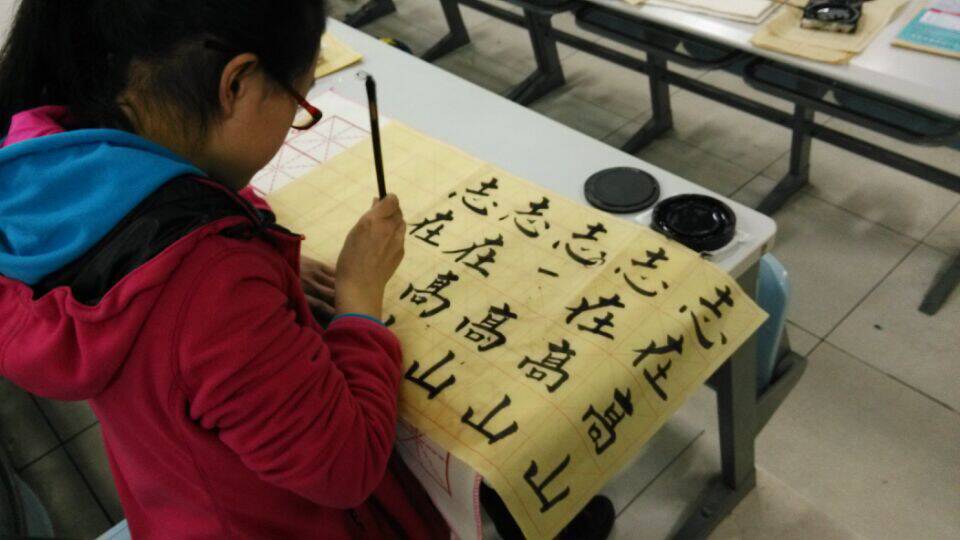 志在高山
志在高山
志一高山
志在高
志在